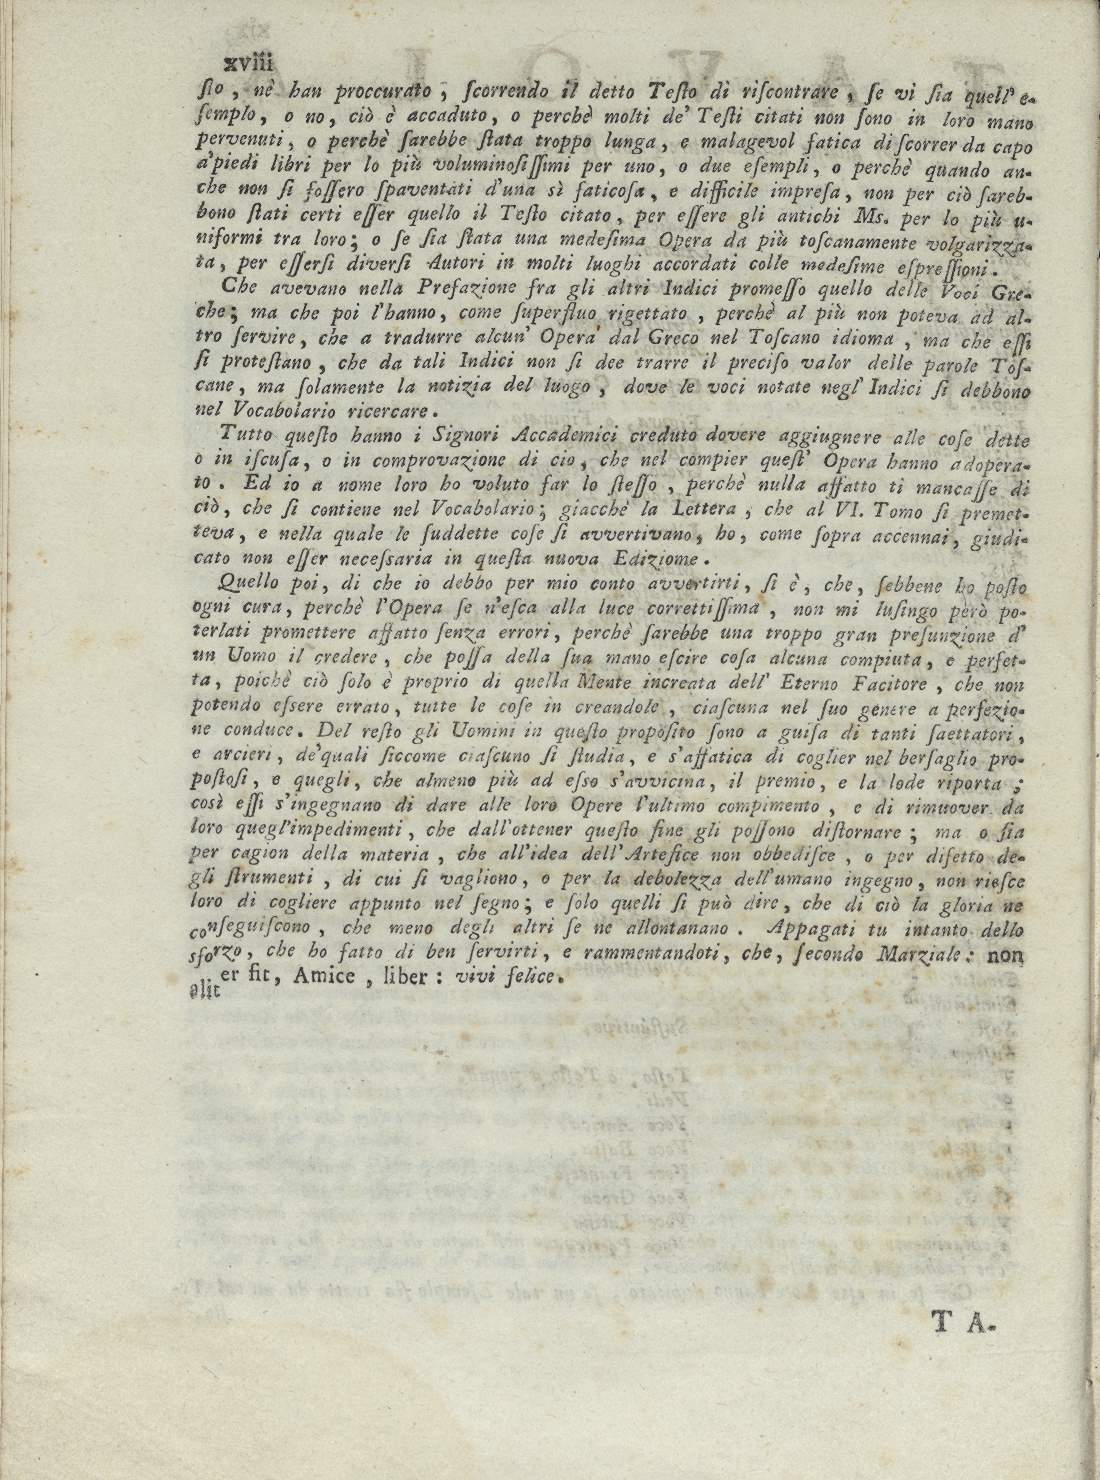 xviii
ſto, nè han proccurato, ſcorrendo il detto Teſto di riſcontrare, ſe vi ſia quell' e-
ſemplo, o no, ciò è accaduto, o perchè molti de' Teſti citati non ſono in loro mano
pervenuti, o perchè ſarebbe ſtata troppo lunga, e malagevol fatica di ſcorrer da capo
a'piedi libri per lo più voluminoſiſſimi per uno, o due eſempli, o perchè quando an-
che non ſi foſſero ſpaventati d'una sì faticoſa, e difficile impreſa, non per ciò ſareb-
bono ſtati certi eſſer quello il Teſto citato, per eſſere gli antichi Ms. per lo più u-
niformi tra loro; o ſe ſia ſtata una medeſima Opera da più toſcanamente volgarizza-
ta, per eſſerſi diverſi Autori in molti luoghi accordati colle medeſime eſpreſſioni.
Che avevano nella Prefazione fra gli altri Indici promeſſo quello delle Voci Gre-
che; ma che poi l'hanno, come ſuperfluo rigettato, perchè al più non poteva ad al-
tro ſervire, che a tradurre alcun' Opera dal Greco nel Toſcano idioma, ma che eſſi
ſi proteſtano, che da tali Indici non ſi dee trarre il preciſo valor delle parole Toſ-
cane, ma ſolamente la notizia del luogo, dove le voci notate negl' Indici ſi debbono
nel Vocabolario ricercare.
Tutto queſto hanno i Signori Accademici creduto dovere aggiugnere alle coſe dette
o in iſcuſa, o in comprovazione di cio, che nel compier queſt' Opera hanno adopera-
to. Ed io a nome loro ho voluto far lo ſteſſo, perchè nulla affatto ti mancaſſe di
ciò, che ſi contiene nel Vocabolario; giacchè la Lettera, che al VI. Tomo ſi premet-
teva, e nella quale le ſuddette coſe ſi avvertivano, ho, come ſopra accennai, giudi-
cato non eſſer neceſsaria in queſta nuova Ediziome.
Quello poi, di che io debbo per mio conto avvertirti, ſi è, che, ſebbene ho poſto
ogni cura, perchè l'Opera ſe n'eſca alla luce correttiſſima, non mi luſingo però po-
terlati promettere affatto ſenza errori, perchè ſarebbe una troppo gran preſunzione d'
un Uomo il credere, che poſſa della ſua mano eſcire coſa alcuna compiuta, e perfet-
ta, poichè ciò ſolo è proprio di quella Mente increata dell' Eterno Facitore, che non
potendo eſsere errato, tutte le coſe in creandole, ciaſcuna nel ſuo genere a perfezio-
ne conduce. Del reſto gli Uomini in queſto propoſito ſono a guiſa di tanti ſaettatori,
e arcieri, de'quali ſiccome ciaſcuno ſi ſtudia, e s'affatica di coglier nel berſaglio pro-
poſtoſi, e quegli, che almeno più ad eſso s'avvicina, il premio, e la lode riporta;
così eſſi s'ingegnano di dare alle loro Opere l'ultimo compimento, e di rimuover da
loro quegl'impedimenti, che dall'ottener queſto fine gli poſſono diſtornare; ma o ſia
per cagion della materia, che all'idea dell'Artefice non obbediſce, o per difetto de-
gli ſtrumenti, di cui ſi vagliono, o per la debolezza dell'umano ingegno, non rieſce
loro di cogliere appunto nel ſegno; e ſolo quelli ſi può dire, che di ciò la gloria ne
conſeguiſcono, che meno degli altri ſe ne allontanano. Appagati tu intanto dello
sforzo, che ho fatto di ben ſervirti, e rammentandoti, che, ſecondo Marziale: non
aliter fit, Amice, liber: vivi felice.
T A-